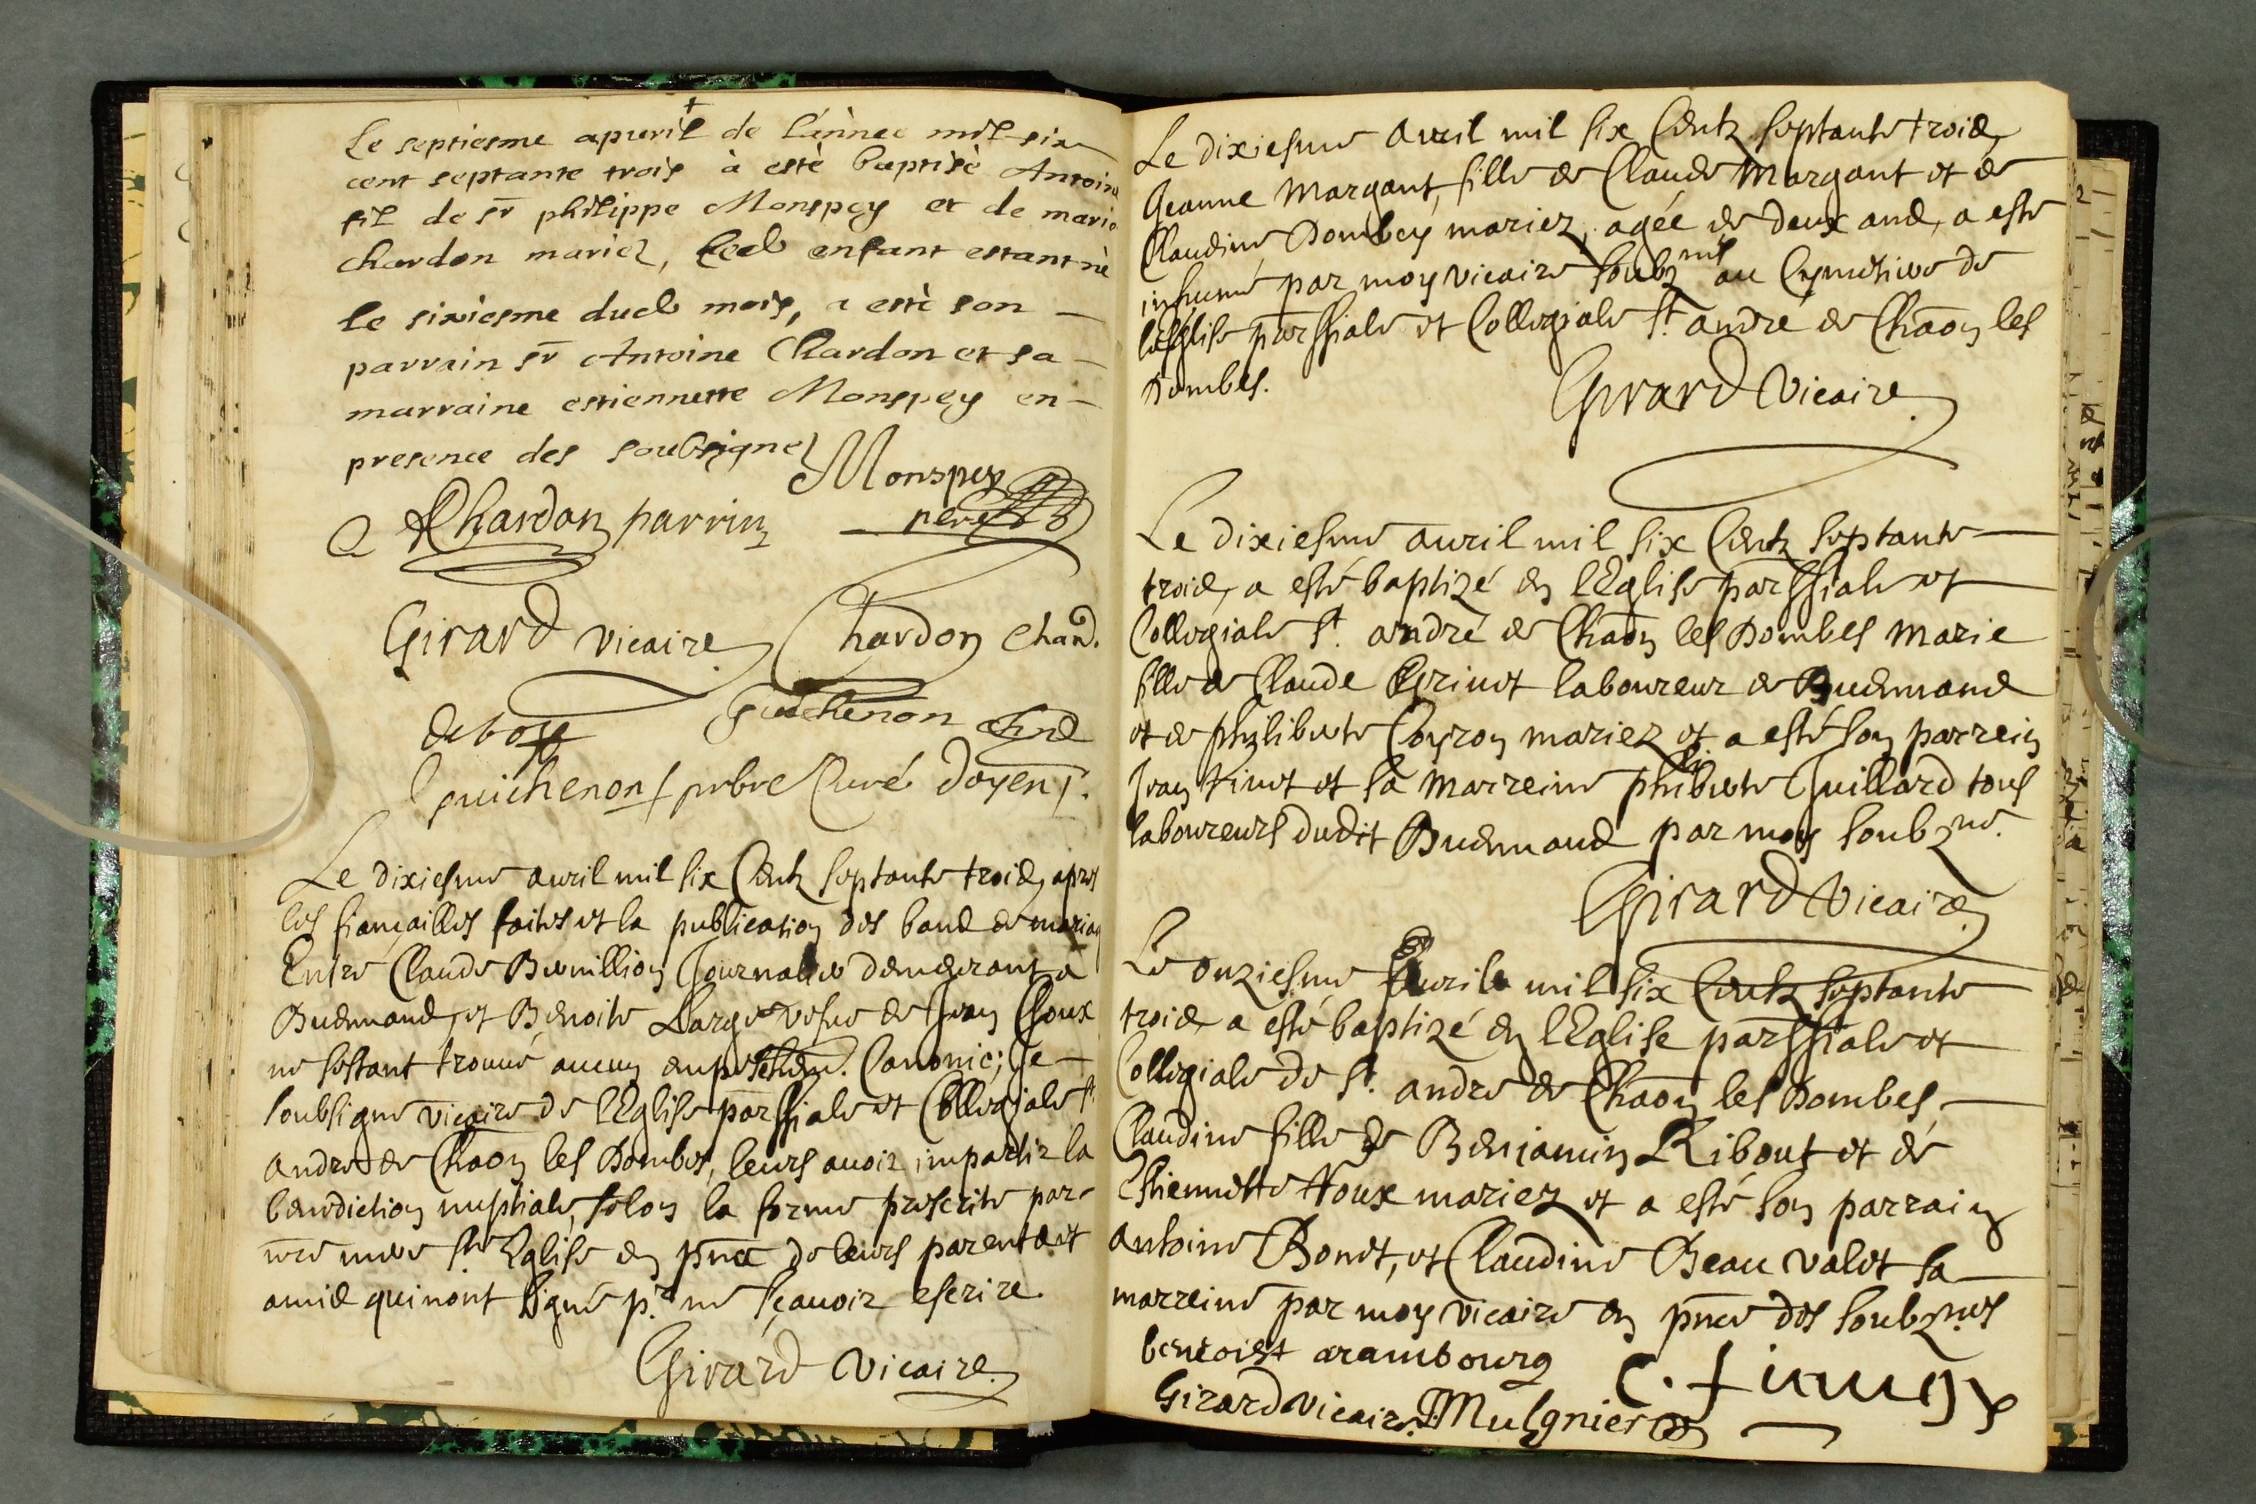 Le septiesme apuril de l'ànnee mil six
cent septante trois à estè baptisè Antoine
fil de sr philippe Monspey et de marie
chardon mariez, led enfant estant nè
le sixiesme dued mois, a estè son
parrain sr Antoine Chardon et sa
marraine estiennette Monspey en
presence des soubsignez
Monspey
pere
A Chardon parrin
Girard vicaire Chardon chan.
Guichenon
debose
Guichenon pbre Curé doyen
Le dixiesme avril mil six Centz septante trois, apres
les fiançailles faites et la publication des bans de mariag
Entre Claude Bernillion Journalier demeurant a
Buenans, et Benoite Large vefve de Jean Choux
ne sestant trouué aucun empeschem. Canonic; Je
soubsigne vicaire de l'Eglise parssiale et Collegiale St
andre de Chaon les Dombes, leurs auoir impartir la
benediction nuptiale, selon la forme prescrite par
nre mere ste Eglise en pnce de leurs parents et
amis qui nont signé pr. ne sçauoir escrire
Girard vicaire
Le dixiesme avril mil six Centz septante trois,
Jeanne Margant, fille de Claude Margant et de
Claudine Dombey mariez, agée de deux ans, a esté
inhume par moy vicaire soubzné au Cymetiere de
l'esglise parssiale et Collegiale St. andré de Chaon les
Dombes. Girard vicaire
Le dixiesme auril mil six Centz septante
trois, a esté baptizé en l'Eglise parssiale et
Collegiale St. andré de Chaon les Dombes Marie
fille de Claude laboureur de Buenans
et de philiberte Coyron mariez et a esté son parrein
Jean et sa Marreine philiberte Juillard tous
laboureurs dudit Buenans par moy soubzne.
Girard Vicaire
Le onziesme Auril mil six Centz septante
trois a esté baptizé en l'Eglise parssiale et
Collegiale de St. andre de Chaon les Dombes,
Claudine fille de Benjamin Ribout et de
Estiennette Houx mariez et a esté son parrain
antoine Bonet, et Claudine Beau valet sa
marreine par moy vicaire en pnce des soubznes
benoist arambourg
Girard vicaire. Mulgnier